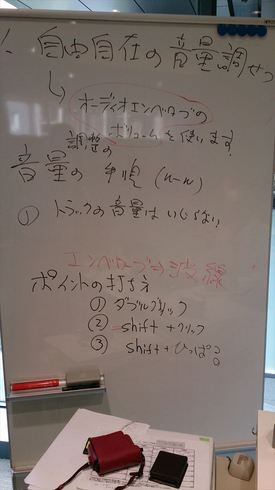 自由自在の音量調せつ
↳ オーディオエンベロープの
ボリュームを使います
調整の
音量の手順
① トラックの音量はいじらない!
エンベロープ⇒波線
ポイントの打ち方
① ダブルクリック
② shift + クリック
③ shift + ひっぱる